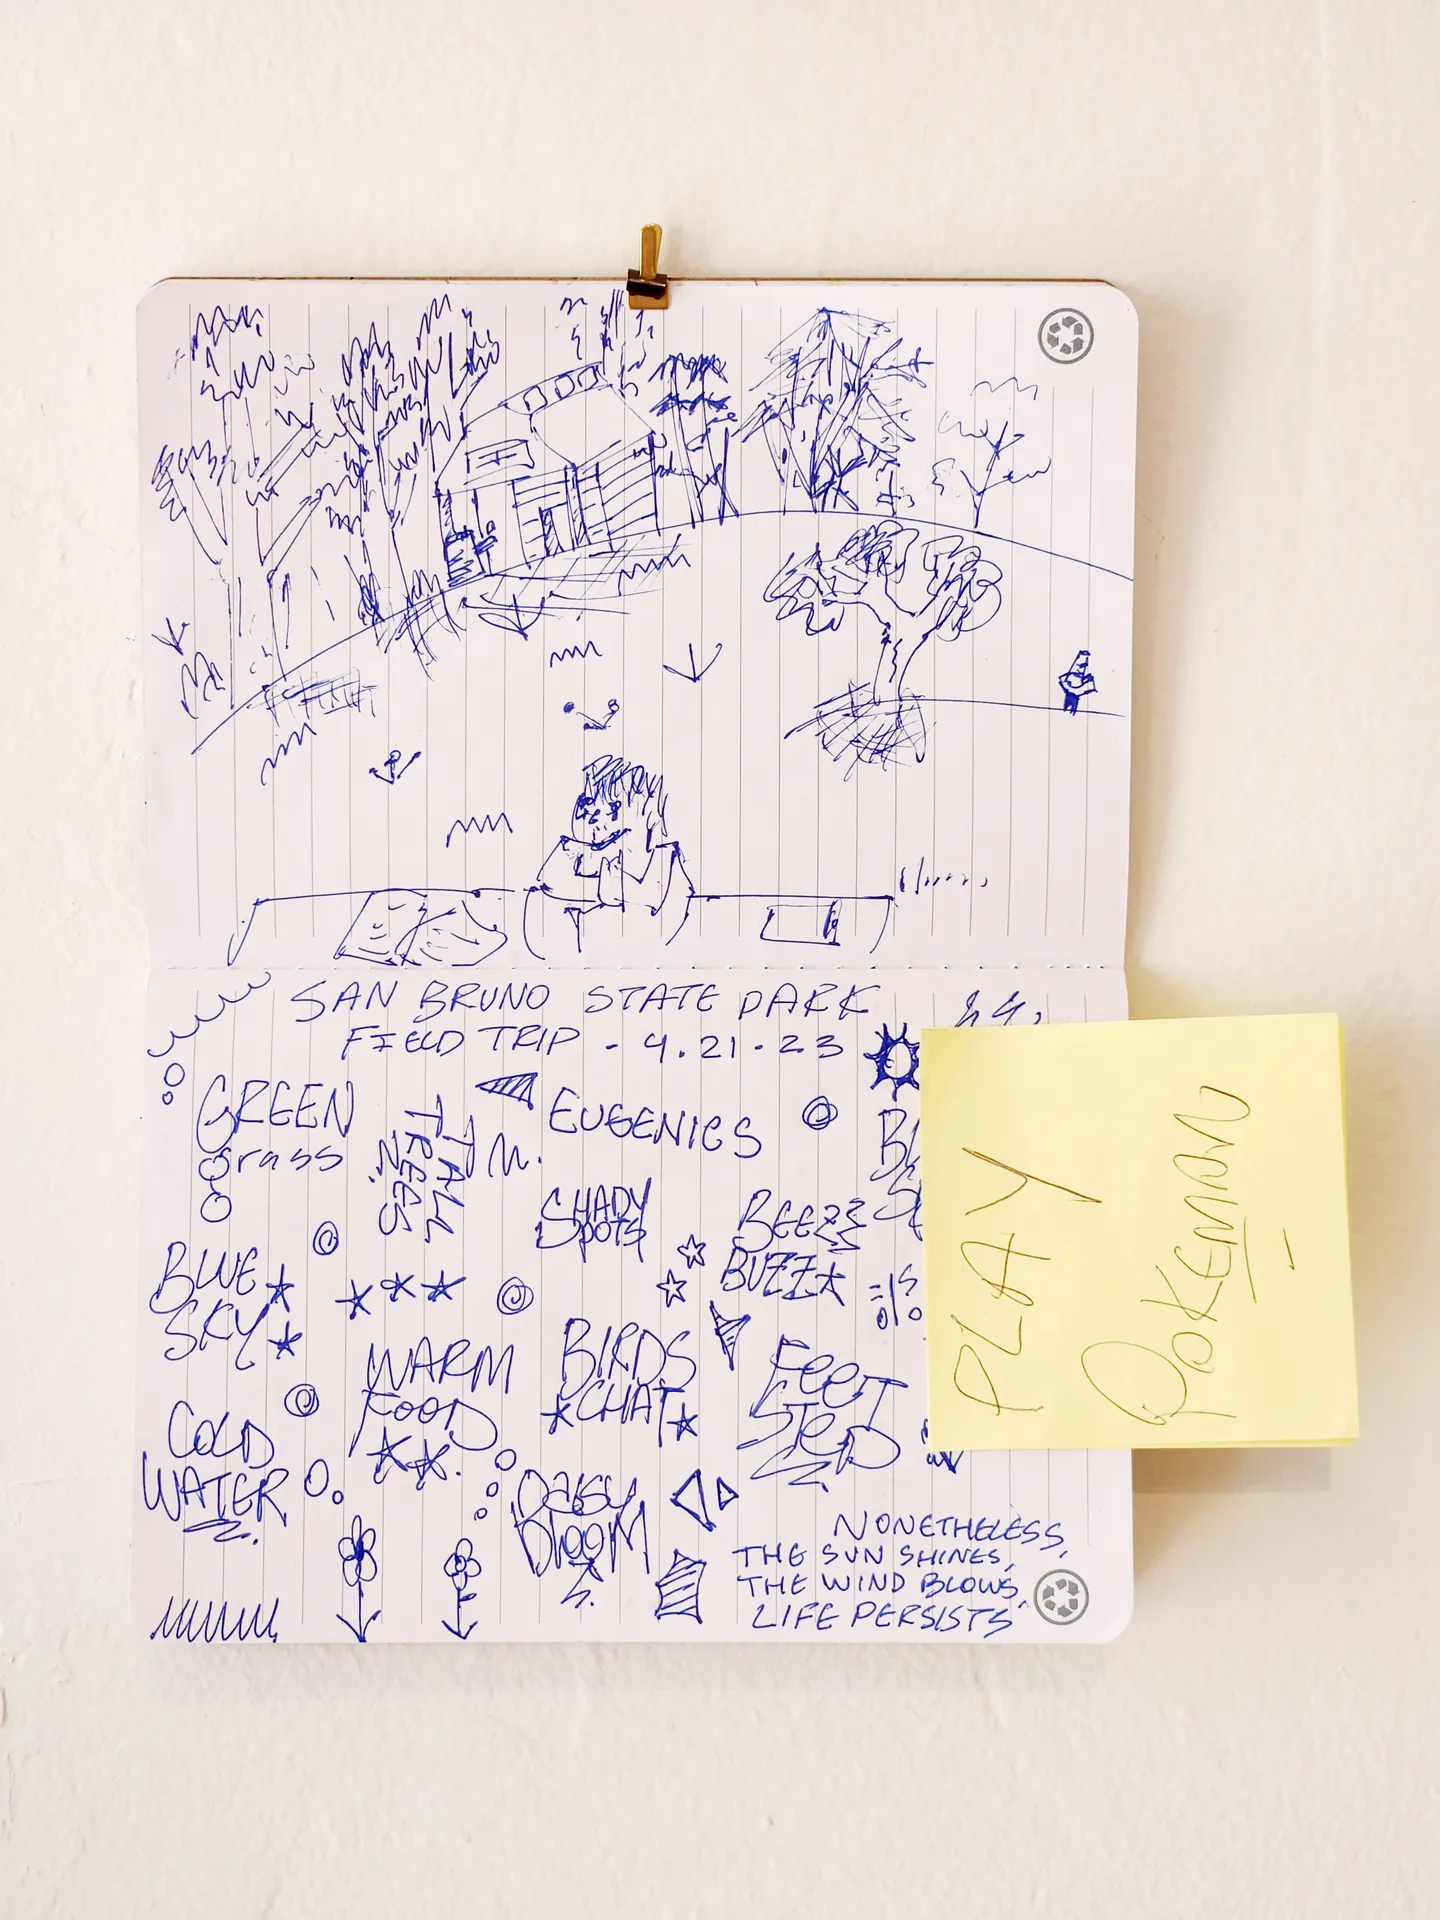 SAN BRUNO STATE PARK
FIELD TRIP - 4.21.23
GREEN
Grass
TALL
TREES
EUGENICS
SHADY
SPOTS
BEEZZ
BUZZ
BLUE
SKY
WARM
FOOD
BIRDS
CHAT
FEET
STEP
COLD
WATER
Daisy
Bloom
NONETHELESS,
THE SUN SHINES,
THE WIND BLOWS,
LIFE PERSISTS
PLAY
POKEMON